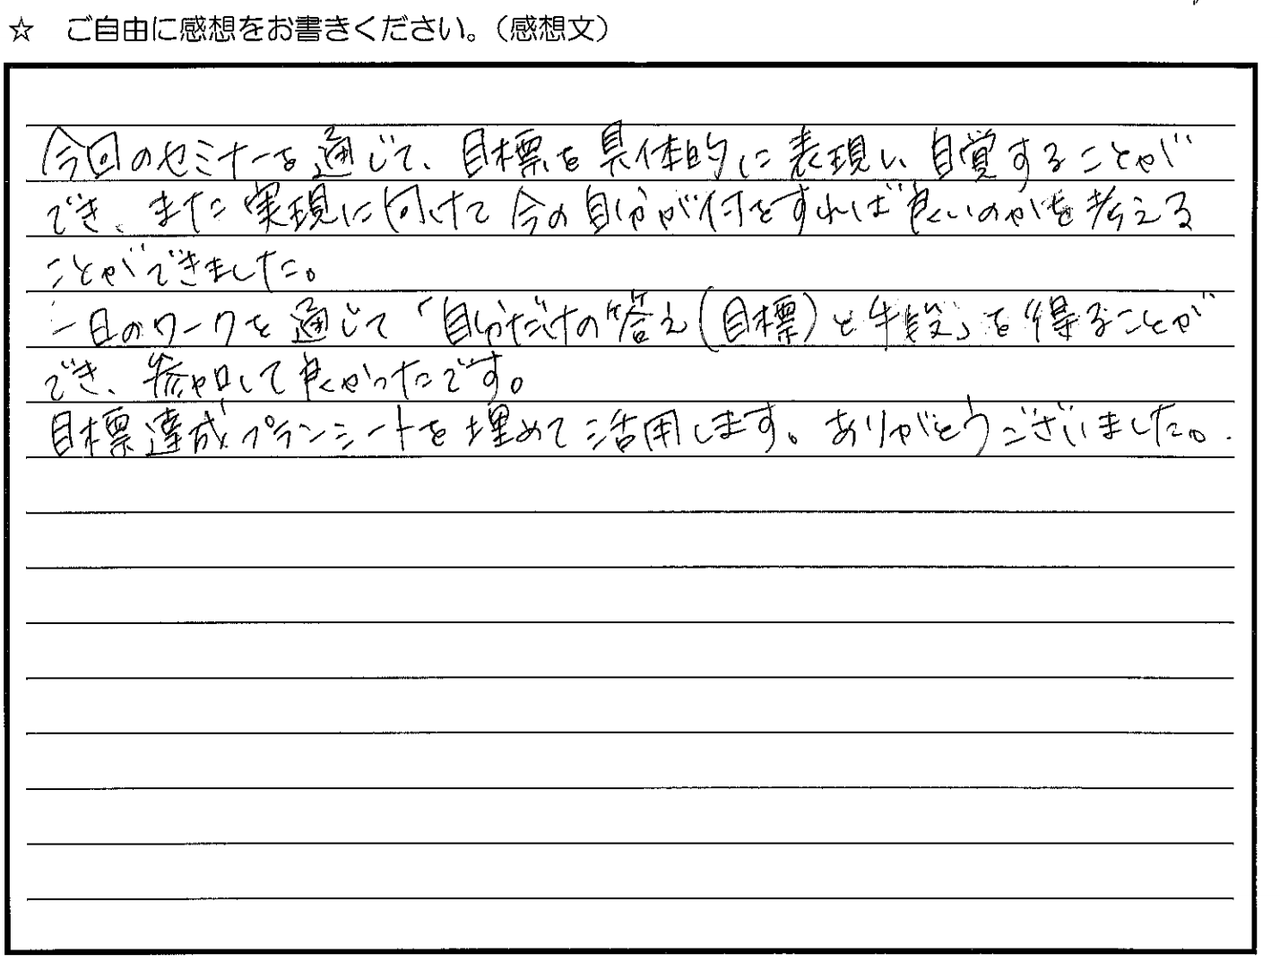 ☆ ご自由に感想をお書きください。(感想文)
今回のセミナーを通じて、目標を具体的に表現し、自覚することが
でき、また実現に向けて今の自分が何をすれば良いのかを考える
ことができました。
一日のワークを通じて「自分だけの答え(目標)と手段」を得ることが
でき、参加して良かったです。
目標達成プランシートを埋めて活用します。ありがとうございました。